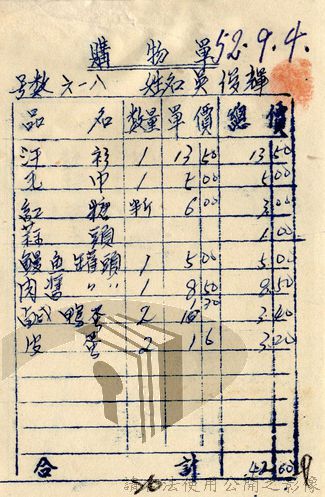 購物單 52.9.4.
号數 六一八 姓名 吳俊輝
品名 數量 單價 總價
汗衫 1 13 50 13 50
毛巾 1 5 00 5 00
紅糖 半斤 6 00 3 00
蒜頭 1 00
鰻魚罐頭 1 5 00 5 00
肉醬 〃 〃 1 8 50 8 50
鹹鴨蛋 2 1 70 3 40
皮蛋 2 1 6 3 20
合計 42 60
請依法使用公開之影像